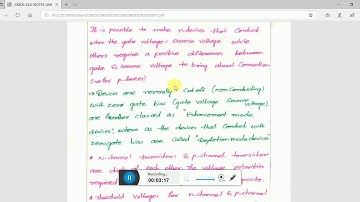 CMOS VLSI NOTES UNI
It is possible to make n.devices that conduct
when the gate voltage = source voltage while
others require a positive difference between
gate & source voltage to bring about conduction
(-ve for p.devices)
→ Devices are normally cut-off (non conducting)
with zero gate bias (gate voltage source voltage)
are further classed as "Enhancement mode
devices", where as the devices that conduct with
zero gate bias are called "Depletion mode device"
* N-channel transistors & p-channel transistors
are of each other the voltage polarities
required posite.
Recording...
00:03:17
* Threshold voltages for n.channel & p.channel